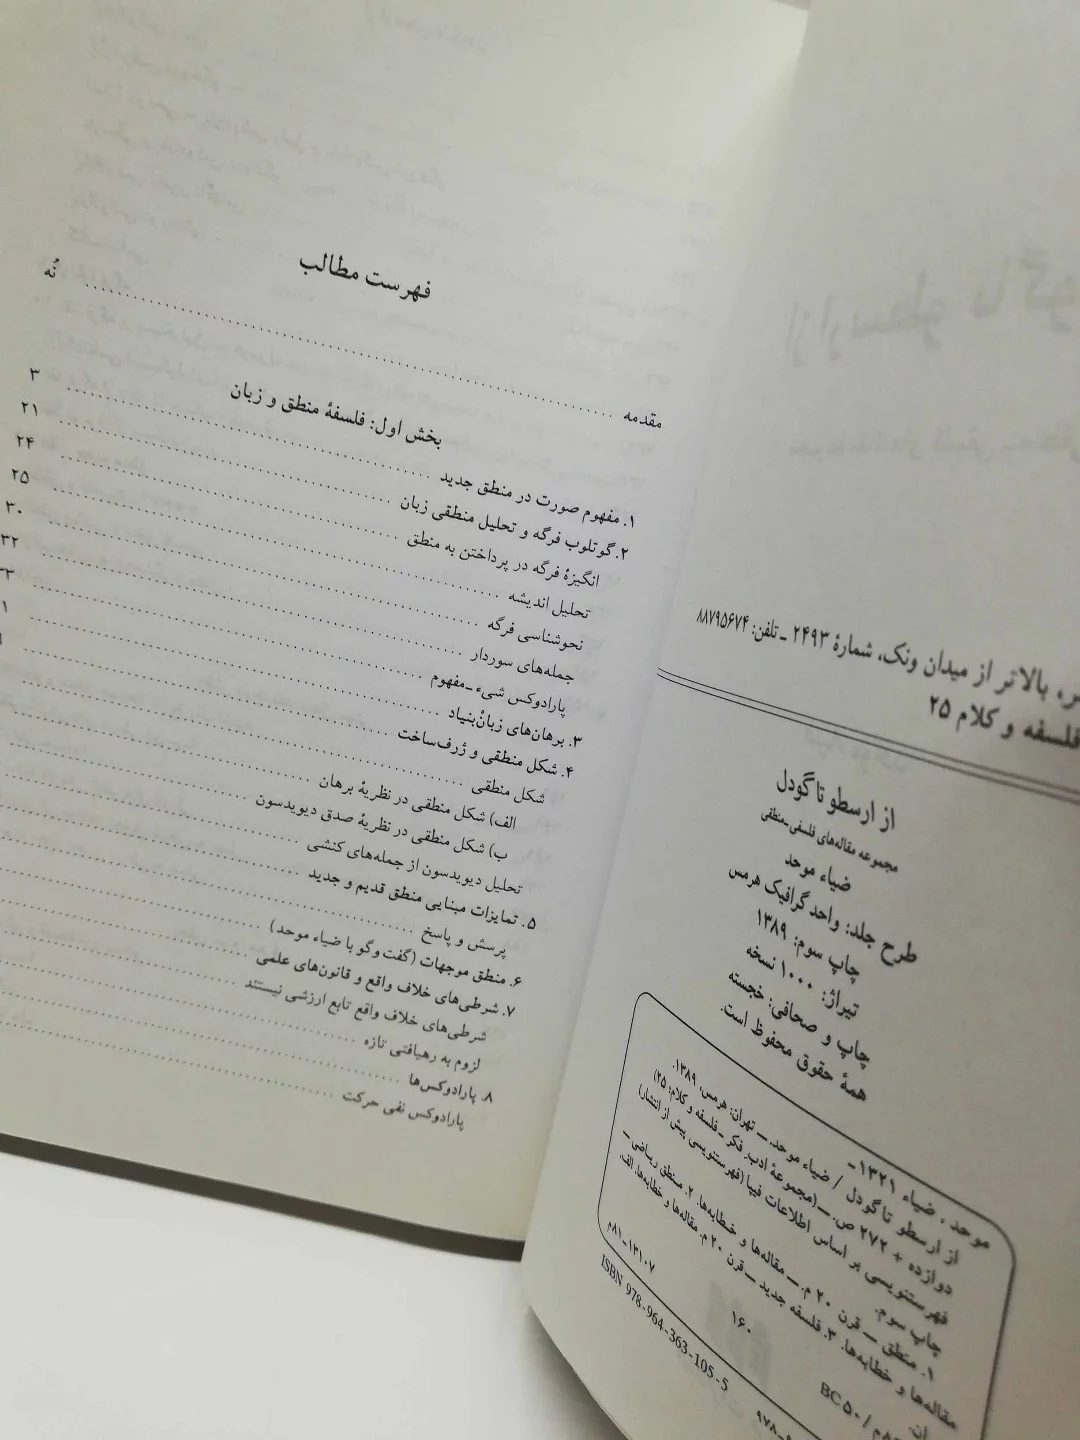 از ارسطو تا گو
ره، بالاتر از میدان ونک، شمارهٔ ۲۴۹۳ ـ تلفن: ۸۸۷۹۵۶۷۴
فلسفه و کلام ۲۵
از ارسطو تا گودل
مجموعه مقاله‌های فلسفی ـ منطقی
ضیاء موحد
طرح جلد: واحد گرافیک هرمس
چاپ سوم: ۱۳۸۹
تیراژ: ۱۰۰۰ نسخه
چاپ و صحافی: خجسته
همهٔ حقوق محفوظ است.
موحد، ضیاء ۱۳۲۱ـ
از ارسطو تا گودل / ضیاء موحد. ــ تهران: هرمس، ۱۳۸۹.
دوازده + ۲۷۲ ص. ــ (مجموعهٔ ادب فکر ـ فلسفه و کلام؛ ۲۵)
فهرستنویسی بر اساس اطلاعات فیپا (فهرستنویسی پیش از انتشار)
چاپ سوم.
۱. منطق ــ قرن ۲۰ م. ــ مقاله‌ها و خطابه‌ها. ۲. منطق ریاضی ــ
مقاله‌ها و خطابه‌ها. ۳. فلسفه جدید ــ قرن ۲۰ م. مقاله‌ها و خطابه‌ها. الف.
ان.
۱۶۰
BC ۵۰ / م۸
۱۳۱۰۷ـ۸۱م
ISBN 978-964-363-105-5
۹۷۸ـ۹
فهرست مطالب
مقدمه ........ نُه
بخش اول: فلسفهٔ منطق و زبان
۱. مفهوم صورت در منطق جدید ........ ۳
۲. گوتلوب فرگه و تحلیل منطقی زبان ........ ۲۱
انگیزهٔ فرگه در پرداختن به منطق ........ ۲۴
تحلیل اندیشه ........ ۲۵
نحوشناسی فرگه ........ ۳۰
جمله‌های سوردار ........ ۳۲
پارادوکس شیء ـ مفهوم ........ ۳۳
۳. برهان‌های زبان‌بنیاد ........ ۱
۴. شکل منطقی و ژرف‌ساخت
شکل منطقی
الف) شکل منطقی در نظریهٔ برهان
ب) شکل منطقی در نظریهٔ صدق دیویدسون
تحلیل دیویدسون از جمله‌های کنشی
۵. تمایزات مبنایی منطق قدیم و جدید
پرسش و پاسخ
۶. منطق موجهات (گفت‌وگو با ضیاء موحد)
۷. شرطی‌های خلاف واقع و قانون‌های علمی
شرطی‌های خلاف واقع تابع ارزشی نیستند
لزوم به رهیافتی تازه
۸. پارادوکس‌ها
پارادوکس نفی حرکت